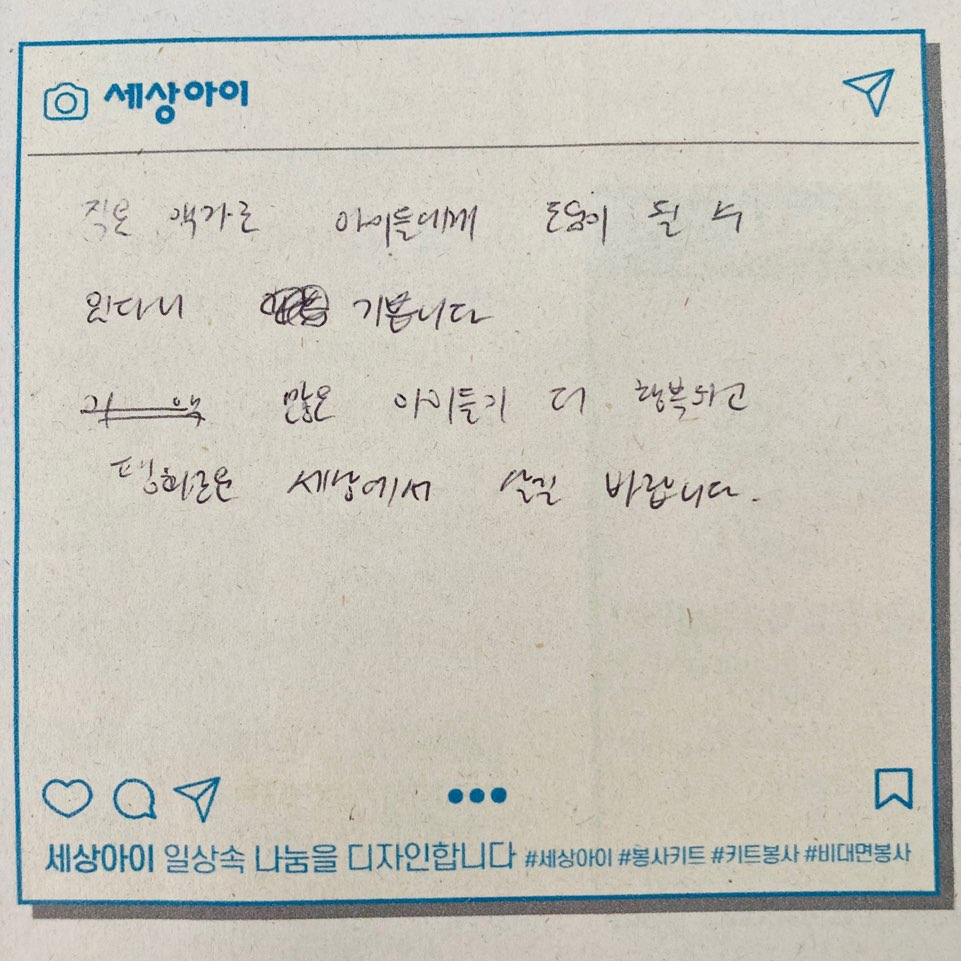 세상아이
작은 액가로 아이들에게 도움이 될 수
있다니 기쁩니다
많은 아이들이 더 행복하고
평화로운 세상에서 살길 바랍니다.
세상아이 일상속 나눔을 디자인합니다 #세상아이 #봉사키트 #키트봉사 #비대면봉사